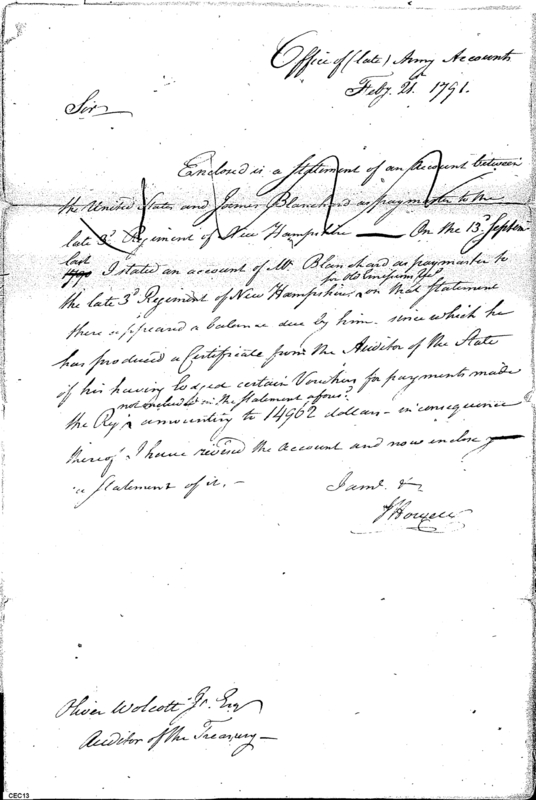 Office of (late) Army Accounts
Feby. 21. 1791.
Sir
Enclosed is a Statement of an Account between
the United States and James Blanchard as paymaster to the
late 3d. Regiment of New Hampshire — On the 13th. Septem
last
1790 I stated an account of Mr. Blanchard as paymaster to
for old Emissions &c
the late 3d. Regiment of New Hampshire, on that Statement
there appeared a balance due by him. since which he
has produced a Certificate from the Auditor of the State
of his having lodged certain Vouchers for payments made
not included in the statement aforesd.
the Regt. amounting to 14962 dollars - in consequence
thereof I have revised the account and now enclose
a Statement of it. -
I am &
J Howell
Oliver Wolcott Jr. Esq
Auditor of the Treasury —
CEC13